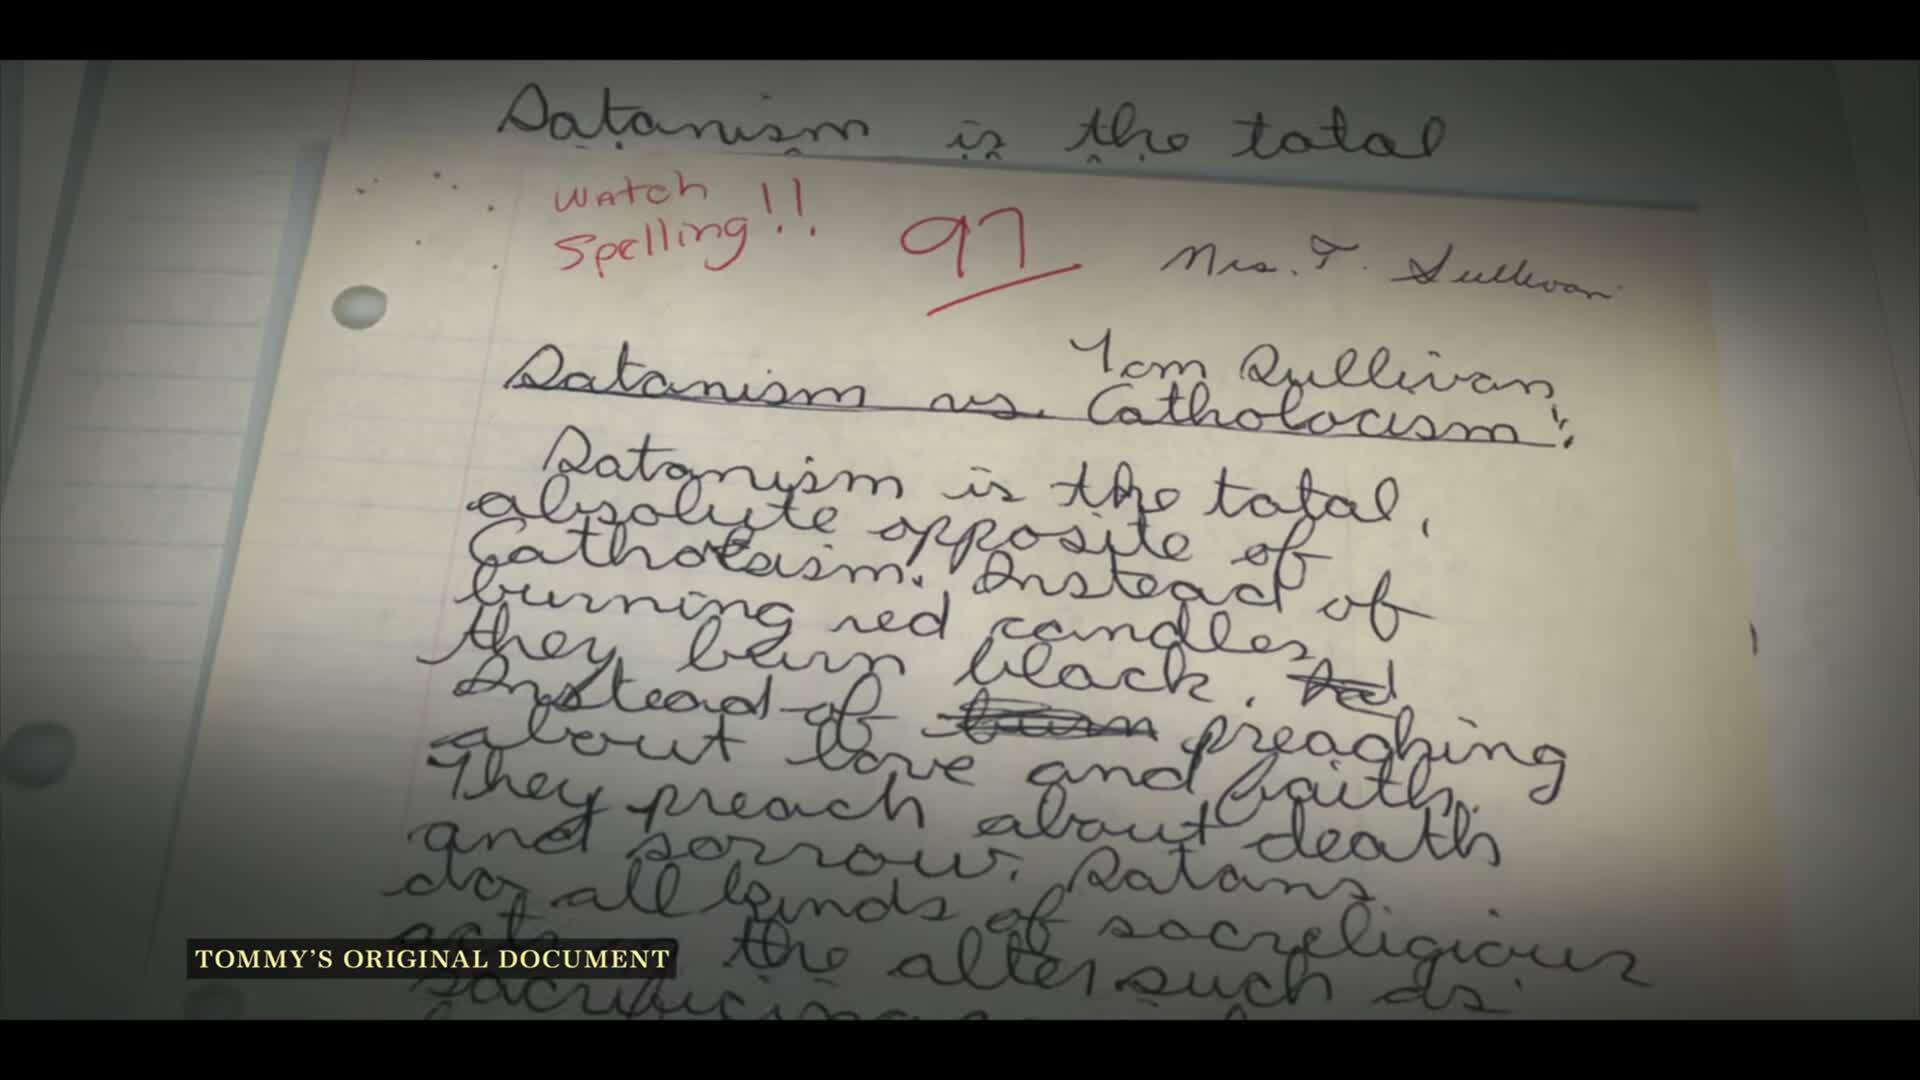 Satanism is the total
Watch
Spelling!!
97
Mrs. T. Sullivan
Tom Sullivan
Satanism vs. Catholocism:
Satanism is the total,
absolute opposite of
Catholcism. Instead of
burning red candles
they burn black.
Instead of burn preaching
about love and faith.
They preach about death
and sorrow. Satans
do all kinds of sacreligious
acts the alter such as
sacrificing
TOMMY'S ORIGINAL DOCUMENT